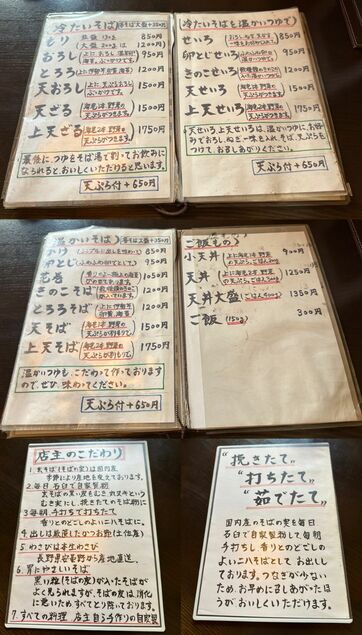 冷たいそば 各そば大盛+350円
もり 並盛 130g 850円
(大盛 200g は 1200円)
おろし (上におろし 温泉卵) ぶっかけです。 950円
とろろ (上に伊勢芋 卵黄 海苔) 1200円
天おろし 上に天ぷらおろし ぶっかけです。 1500円
天ざる 海老1本 野菜の 天ぷらがつきます。 1500円
上天ざる 海老2本 野菜の 天ぷらがつきます。 1750円
最後に、つゆをそば湯で割ってお飲みに
なられると、おいしくいただけると思います。
天ぷら付+650円
冷たいそばを温かいつゆで
せいろ 850円
卵とじせいろ 950円
きのこせいろ 1200円
天せいろ 海老1本 野菜の 天ぷらがつきます。 1500円
上天せいろ 海老2本 野菜の 天ぷらがつきます。 1750円
天せいろ 上天せいろは、温かいつゆに、お好
みでおろし、ねぎと味を入れ、そば、天ぷらも
つけて、お召しあがりください。
天ぷら付+650円
温かいそば 各そば大盛+350円
かけ 850円
卵とじ 950円
花巻 1050円
きのこそば 1200円
とろろそば 1200円
天そば 海老1本 野菜の 天ぷらが付きます。 1500円
上天そば 海老2本 野菜の 天ぷらが付きます。 1750円
温かいつゆも、こだわって作っております
ので、ぜひ、味わってください。
天ぷら付+650円
ご飯もの
小天丼 900円
天丼 1250円
天丼大盛 1350円
ご飯 (150g) 300円
店主のこだわり
1. 玄そば(そばの実)は国内産
季節により産地を変えております。
2. 毎日 石臼で自家製粉
3. 毎朝、手打ちで打ちたて
香りとのどごしのよい二八そばに。
4. 出しは厳選したかつお節(土佐産)
5. わさびは本生わさび
長野県安曇野から産地直送。
6. 胃にやさしいそば
黒い殻(そばの皮)が入ったそばが
よく見られますが、そばの皮は、消化
に悪いため、すべてとり除いております。
7. すべての料理 店主自ら手作りの自家製
"挽きたて"
"打ちたて"
"茹でたて"
国内産のそばの実を毎日
石臼で自家製粉して毎朝
手打ちし、香りとのどごしの
よい二八そばとして お出しし
ております。つなぎが少ない
ため、お早めに召しあがったほ
うが、おいしくいただけます。